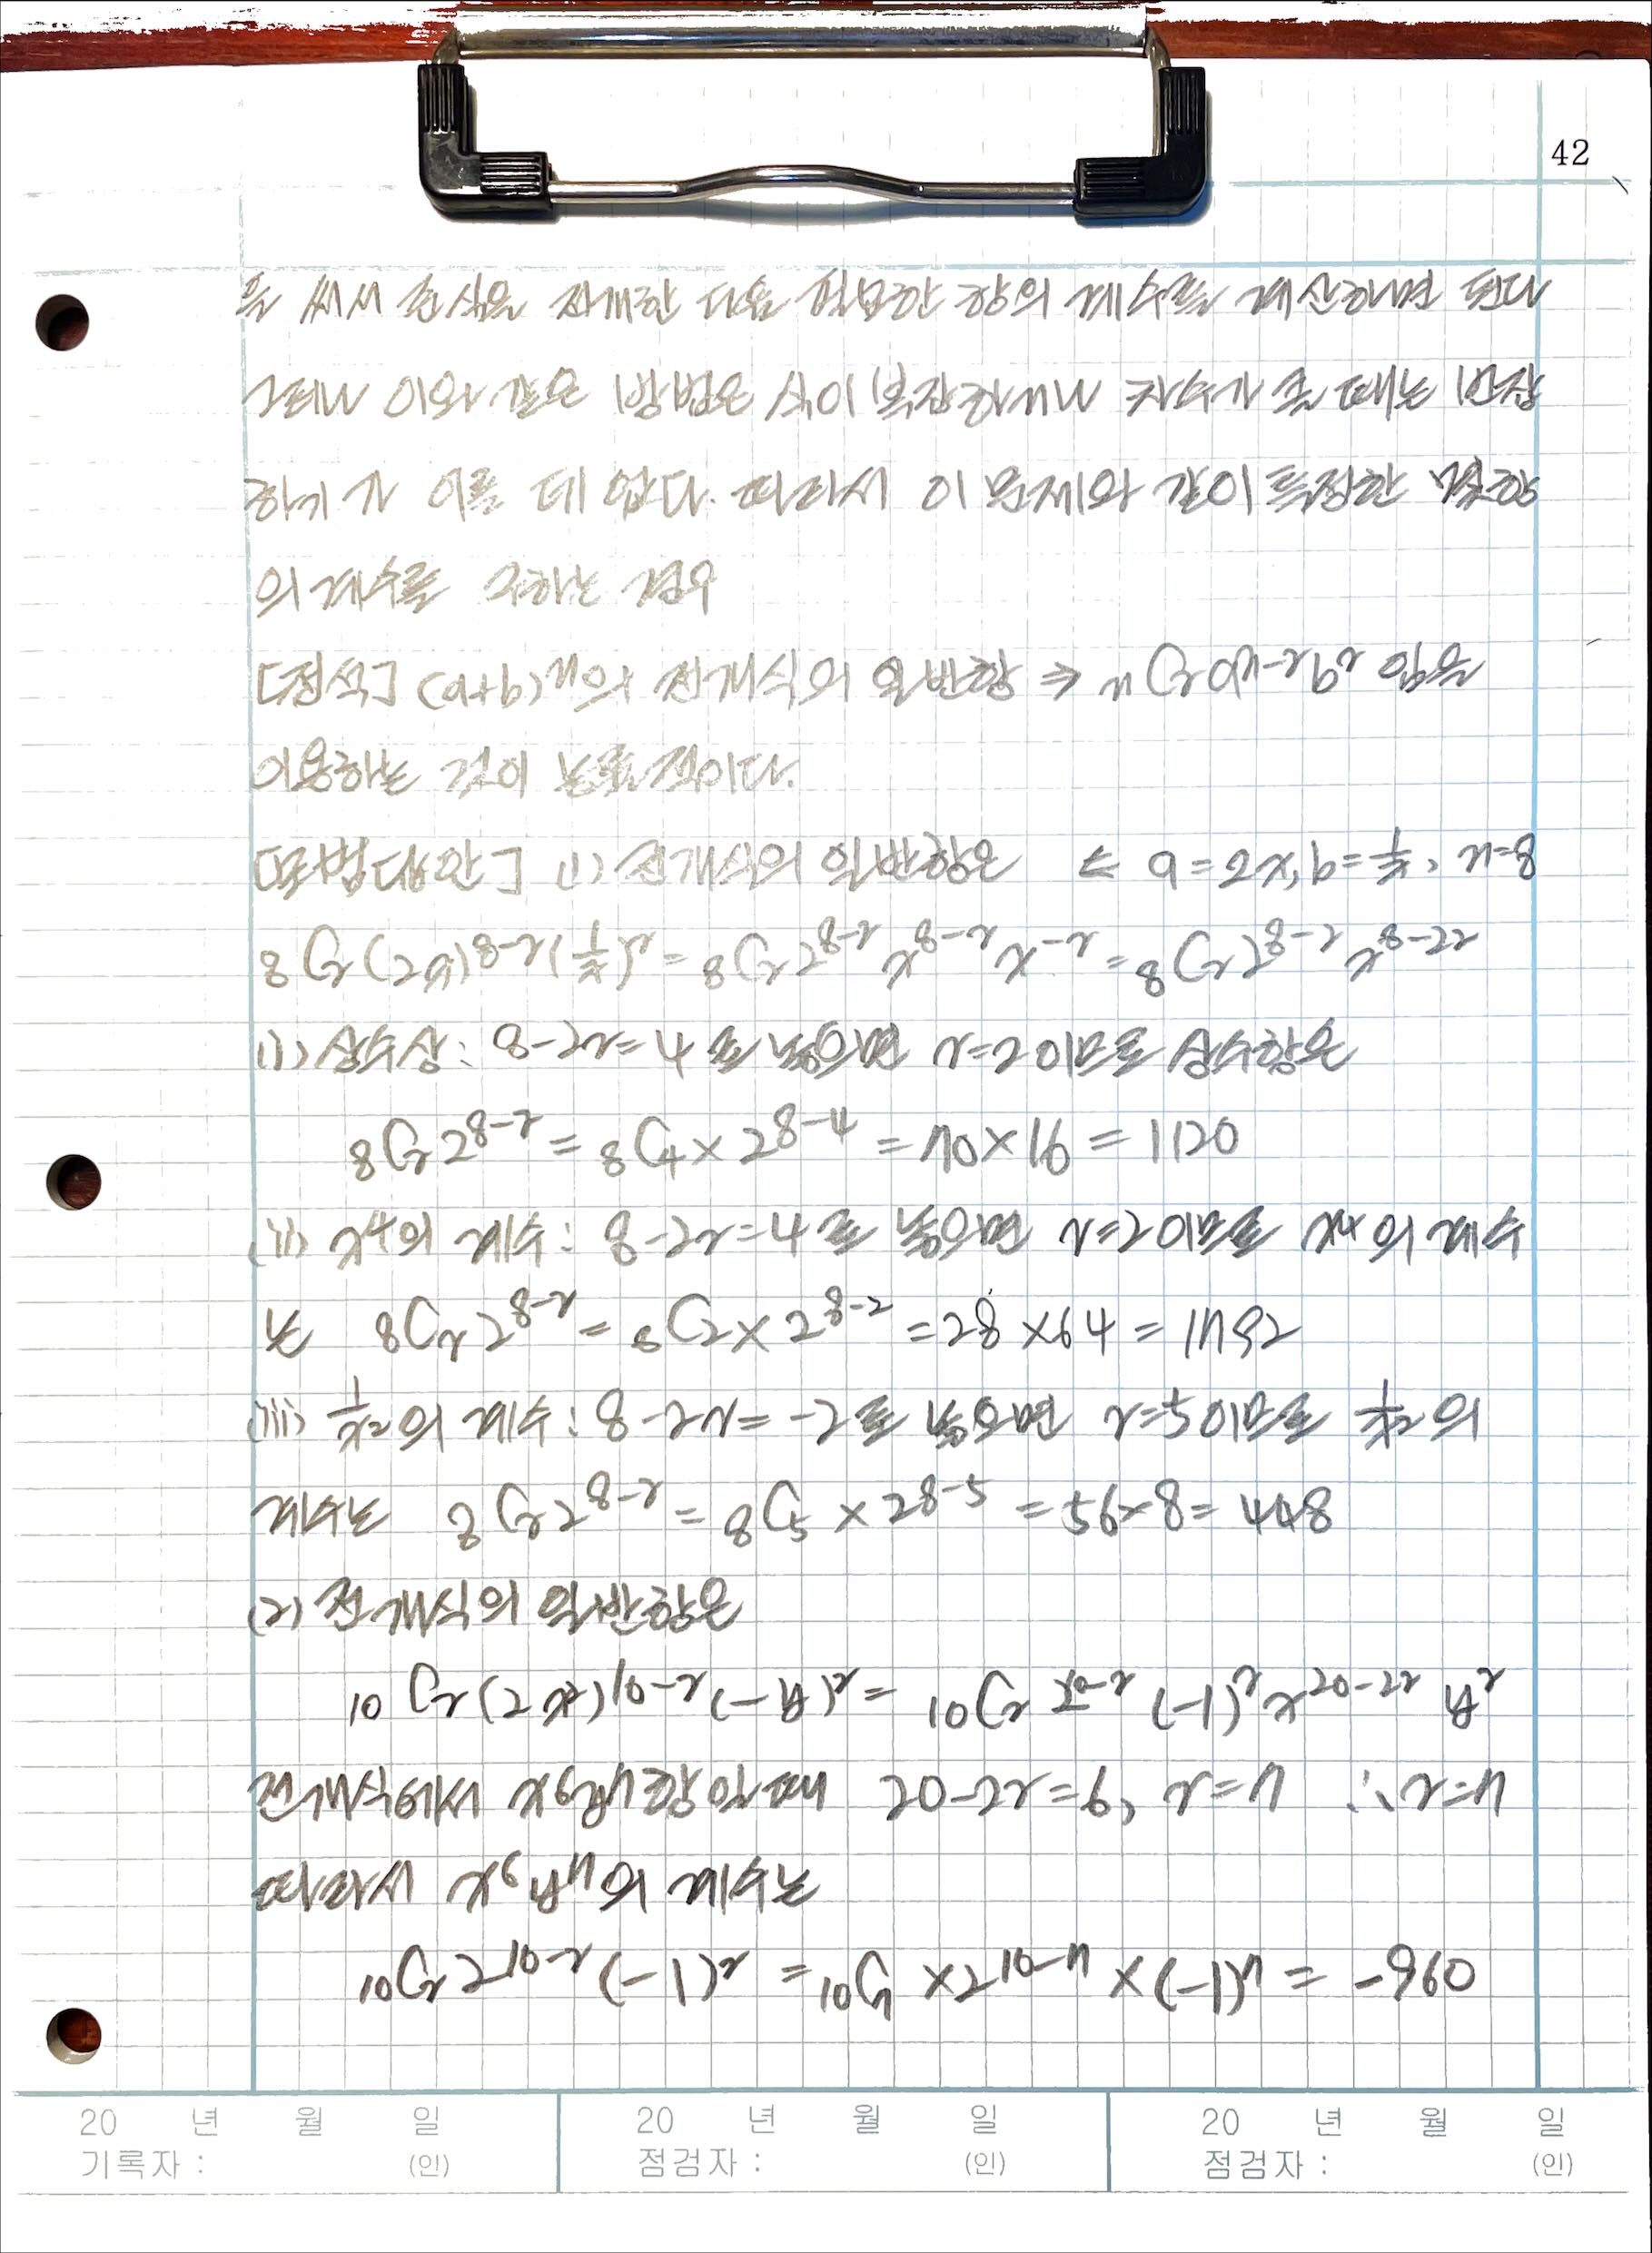 42
을 써서 준식을 전개한 다음 필요한 항의 계수를 계산하면 된다
그러나 이와 같은 방법은 식이 복잡하거나 차수가 클 때는 번잡
하기가 이를 데 없다. 따라서 이 문제와 같이 특정한 몇 항
의 계수를 구하는 경우
[정석] (a+b)ⁿ의 전개식의 일반항 ⇒ nCr aⁿ⁻ʳbʳ 임을
이용하는 것이 능률적이다.
[모범답안] (1) 전개식의 일반항은 ⇐ a=2x, b=1/x, n=8
8Cr(2x)^8-r(1/x)^r = 8Cr 2^8-r x^8-r x^-r = 8Cr 2^8-r x^8-2r
(i) 상수상: 8-2r=4로 놓으면 r=2이므로 상수항은
8Cr 2^8-r = 8C4 × 2^8-4 = 70×16 = 1120
(ii) x⁴의 계수: 8-2r=4로 놓으면 r=2이므로 x⁴의 계수
는 8Cr 2^8-r = 8C2 × 2^8-2 = 28×64 = 1792
(iii) 1/x²의 계수: 8-2r=-2로 놓으면 r=5이므로 1/x²의
계수는 8Cr 2^8-r = 8C5 × 2^8-5 = 56×8 = 448
(2) 전개식의 일반항은
10Cr(2x²)^10-r(-y)^r = 10Cr 2^10-r (-1)^r x^20-2r y^r
전개식에서 x⁶y⁷항일 때 20-2r=6, r=7 ∴ r=7
따라서 x⁶y⁷의 계수는
10Cr 2^10-r (-1)^r = 10C7 × 2^10-7 × (-1)^7 = -960
20 년 월 일 20 년 월 일 20 년 월 일
기록자 : (인) 점검자 : (인) 점검자 : (인)